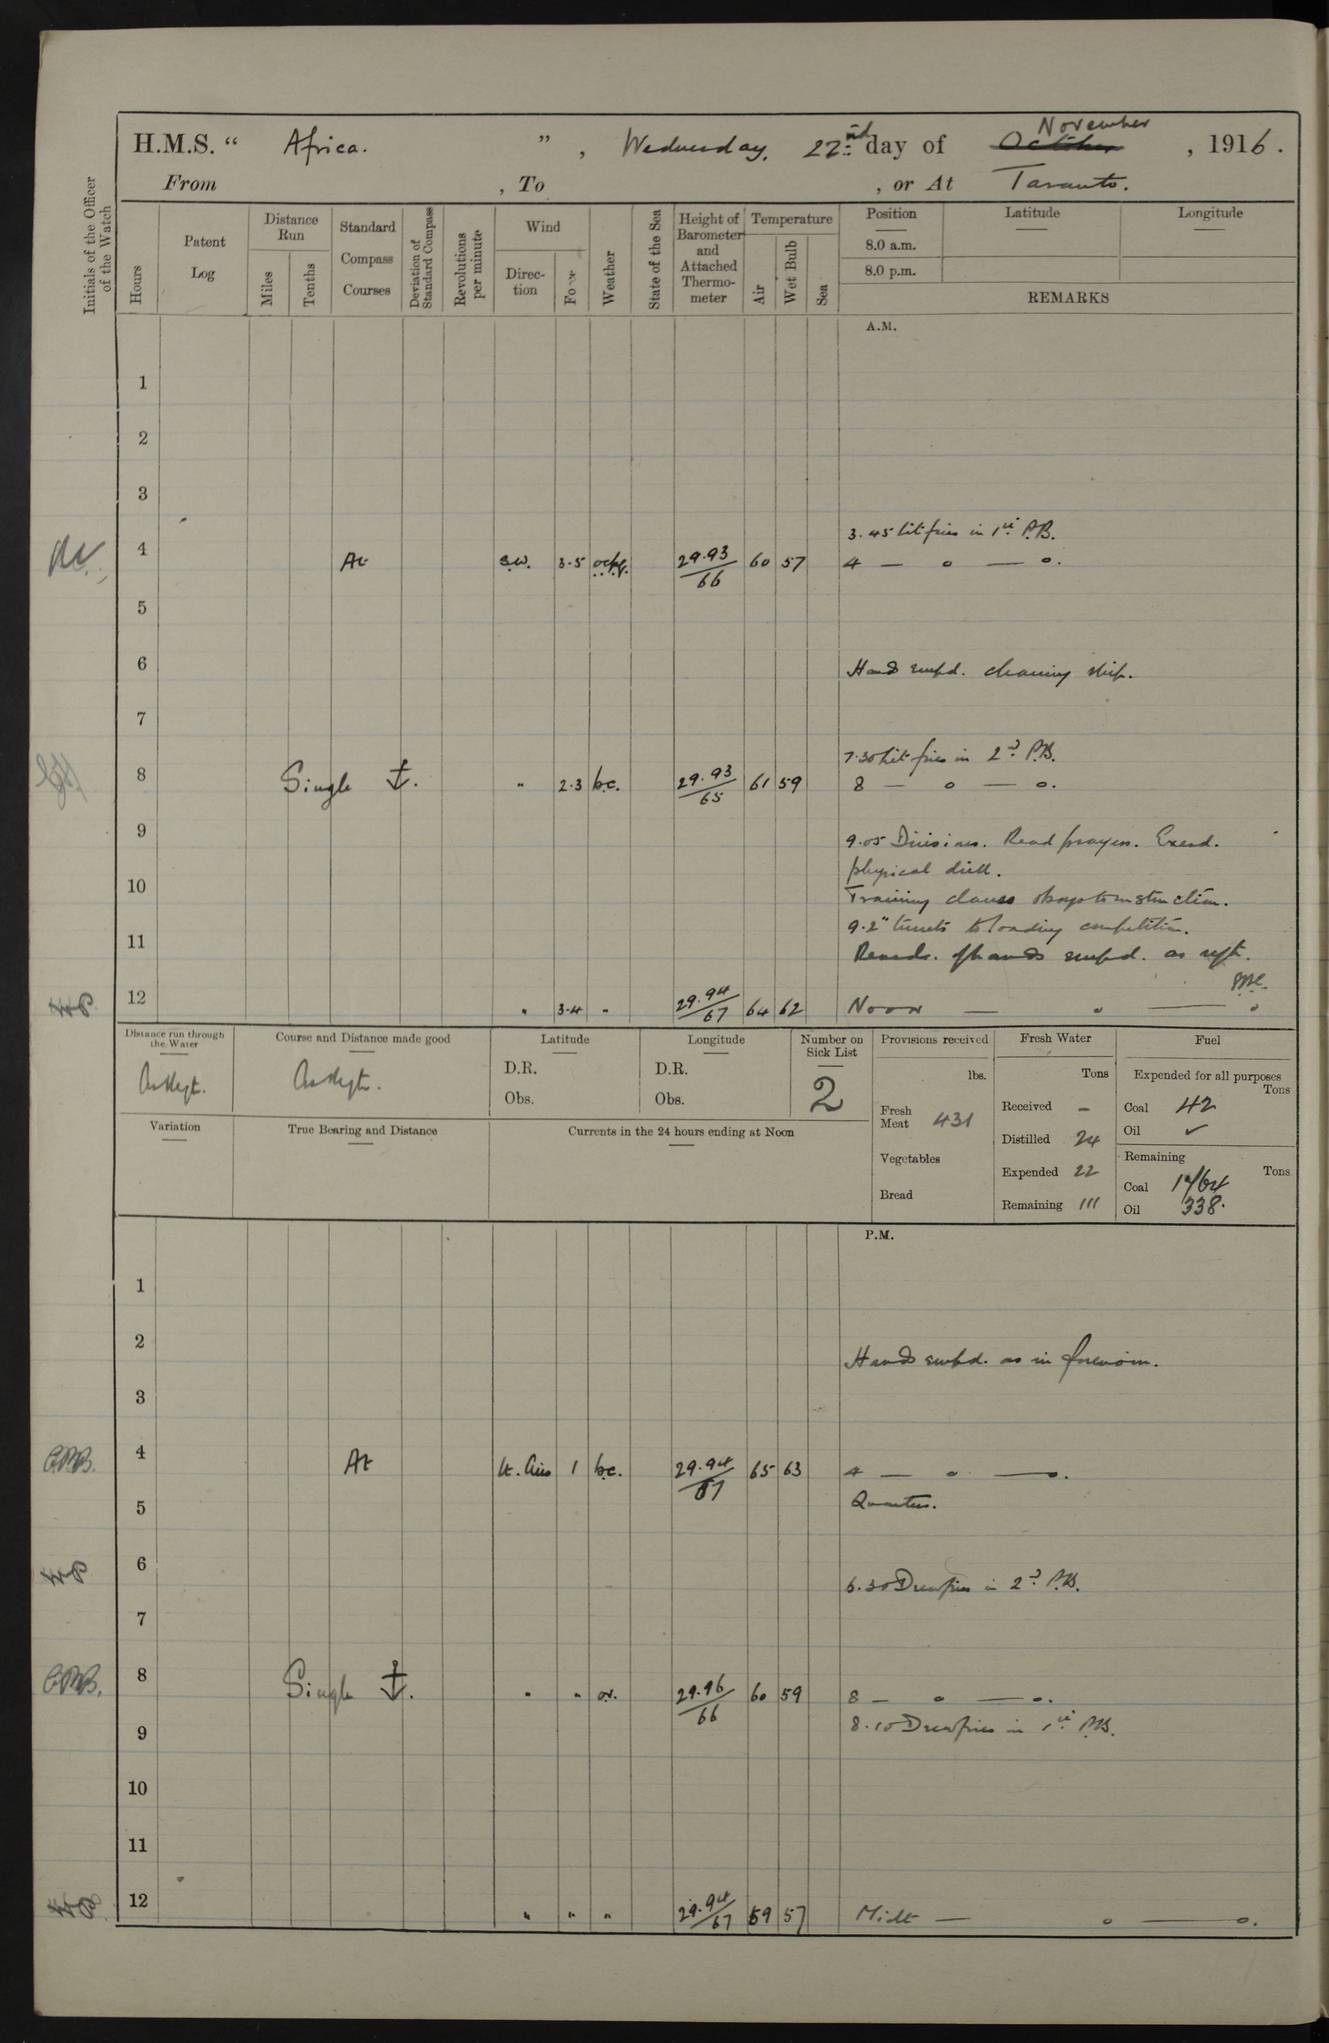 H.M.S. “ Africa. ” , Wednesday, 22nd day of October November , 1916.
From , To , or At Taranto.
Initials of the Officer of the Watch
Hours
Patent Log
Distance Run
Miles
Tenths
Standard Compass Courses
Deviation of Standard Compass
Revolutions per minute
Wind
Direc-tion
Force
Weather
State of the Sea
Height of Barometer and Attached Thermo-meter
Temperature
Air
Wet Bulb
Sea
Position
Latitude
Longitude
8.0 a.m.
8.0 p.m.
REMARKS
A.M.
1
2
3
3.45 Lit fires in 1st P.B.
4 At S.W. 3.5 29.93/66 60 57 4 — o — o.
5
6
Hands empd. cleaning ship.
7
7.30 Lit fires in 2nd P.B.
8 Single ⚓. " 2.3 b.c. 29.93/65 61 59 8 — o — o.
9
9.05 Divisions. Read prayers. Exerd.
10 physical drill.
Training classes to instruction.
9.2" turrets to loading competition.
11
Remdr. of hands empd. as reqte.
12 " 3.4 " 29.94/67 64 62 Noon — o — o
Distance run through the Water
Course and Distance made good
Latitude
Longitude
Number on Sick List
Provisions received
Fresh Water
Fuel
D.R.
D.R.
lbs.
Tons
Expended for all purposes
Tons
Obs.
Obs.
2
Fresh Meat 431
Received –
Coal 42
Oil ✓
Variation
True Bearing and Distance
Currents in the 24 hours ending at Noon
Distilled 24
Vegetables
Expended 22
Remaining
Tons
Coal
Bread
Remaining 111
Oil 338.
P.M.
1
2
Hands empd. as in forenoon.
3
C.P.B. 4 At Lt. Airs 1 b.c. 29.94/67 65 63 4 — o — o.
Quarters.
5
6
6.30 Drew fires in 2nd P.B.
7
C.P.B. 8 Single ⚓. " " o.r. 29.96/66 60 59 8 — o — o.
8.10 Drew fires in 1st P.B.
9
10
11
12 " " " 29.94/67 59 57 Midt — o — o.